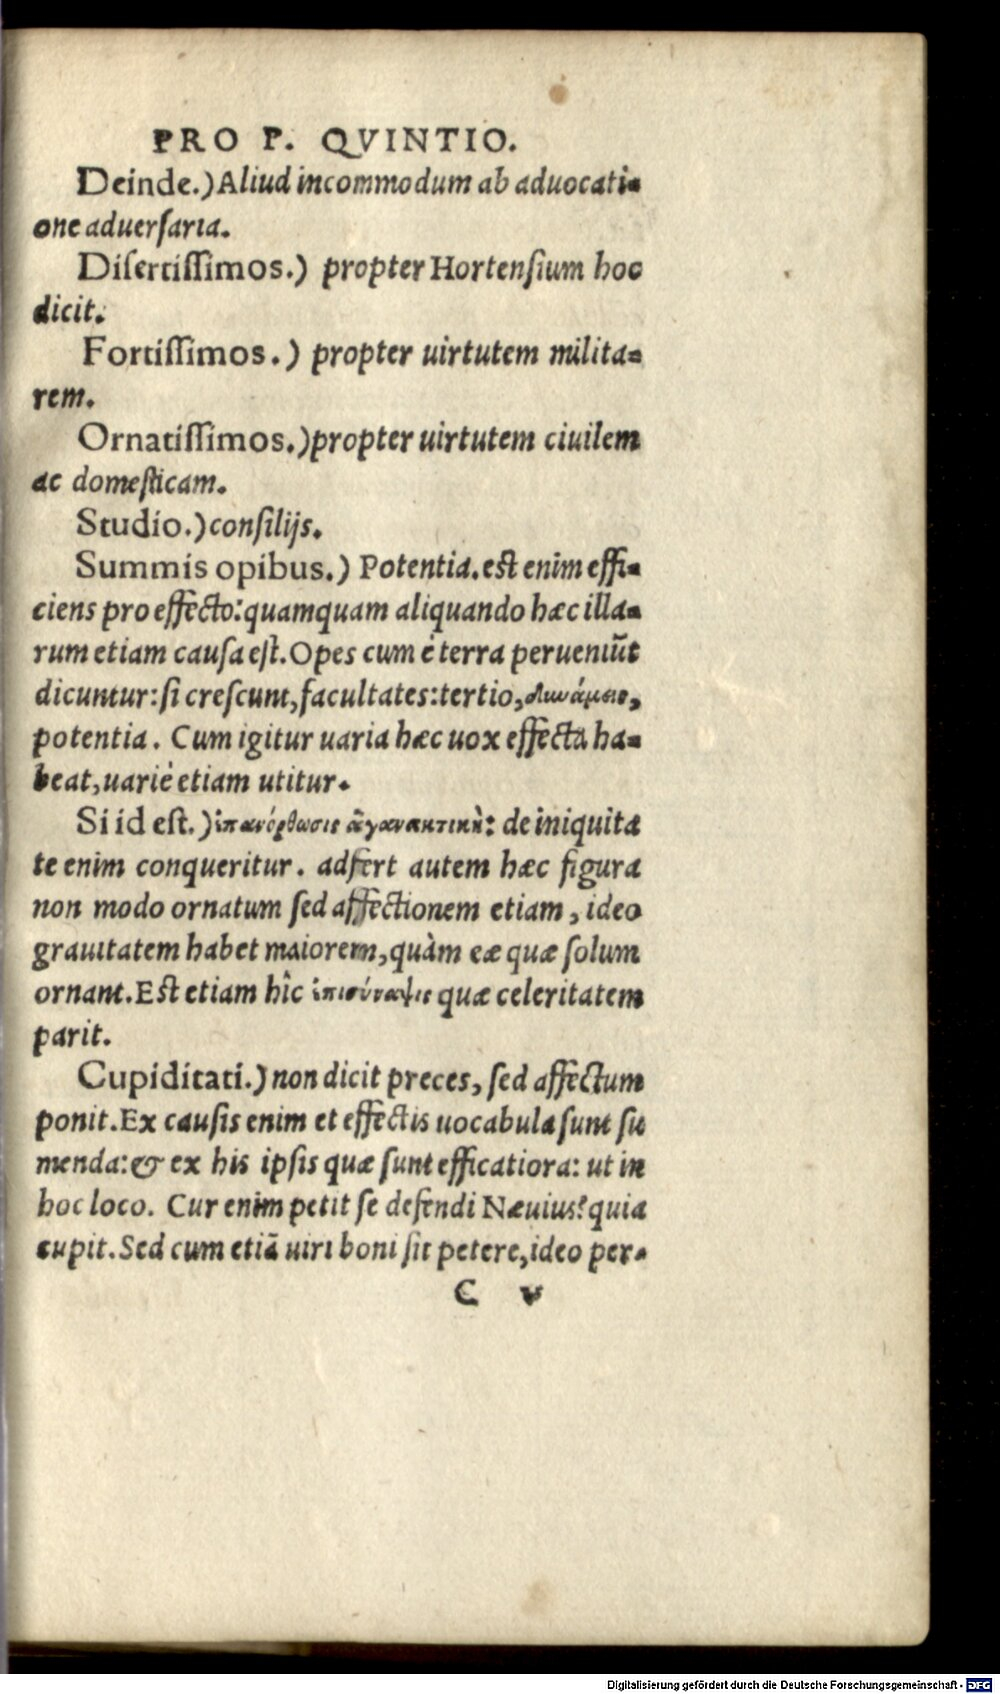 PRO P. QVINTIO.
Deinde.) Aliud incommodum ab aduocati=
one aduersaria.
Disertissimos.) propter Hortensium hoc
dicit.
Fortissimos.) propter uirtutem milita=
rem.
Ornatissimos.) propter uirtutem ciuilem
ac domesticam.
Studio.) consilijs.
Summis opibus.) Potentia. est enim effi=
ciens pro effecto: quamquam aliquando hæc illa=
rum etiam causa est. Opes cum è terra perueniũt
dicuntur: si crescunt, facultates: tertio, δυνάμεις,
potentia. Cum igitur uaria hæc uox effecta ha=
beat, uariè etiam utitur.
Si id est.) ἐπανόρθωσις ἀγανακτικὴ: de iniquita
te enim conqueritur. adfert autem hæc figura
non modo ornatum sed affectionem etiam, ideo
grauitatem habet maiorem, quàm eæ quæ solum
ornant. Est etiam hîc ἐπισύναψις quæ celeritatem
parit.
Cupiditati.) non dicit preces, sed affectum
ponit. Ex causis enim et effectis uocabula sunt su
menda: & ex his ipsis quæ sunt efficatiora: ut in
hoc loco. Cur enim petit se defendi Næuius? quia
cupit. Sed cum etiã uiri boni sit petere, ideo per=
C v
Digitalisierung gefördert durch die Deutsche Forschungsgemeinschaft - DFG